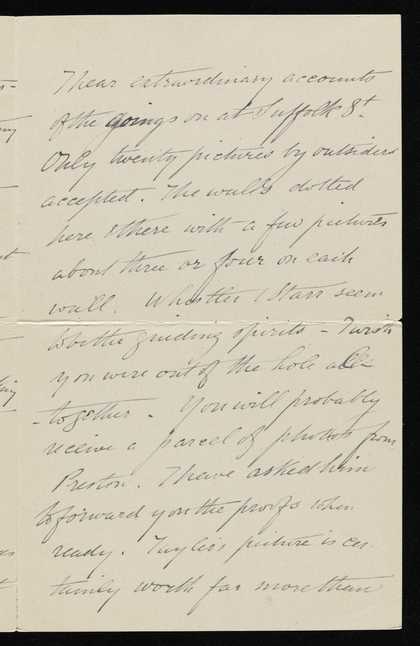 I hear extraordinary accounts
of the goings on at Suffolk St.
Only twenty pictures by outsiders
accepted. The walls dotted
here & there with a few pictures
about three or four on each
wall. Whistler & Starr seem
to be the guiding spirits - I wish
you were out of the hole al-
-together. You will probably
receive a parcel of photos from
Preston. I have asked him
to forward you the proofs when
ready. picture is cer-
tainly worth far more than